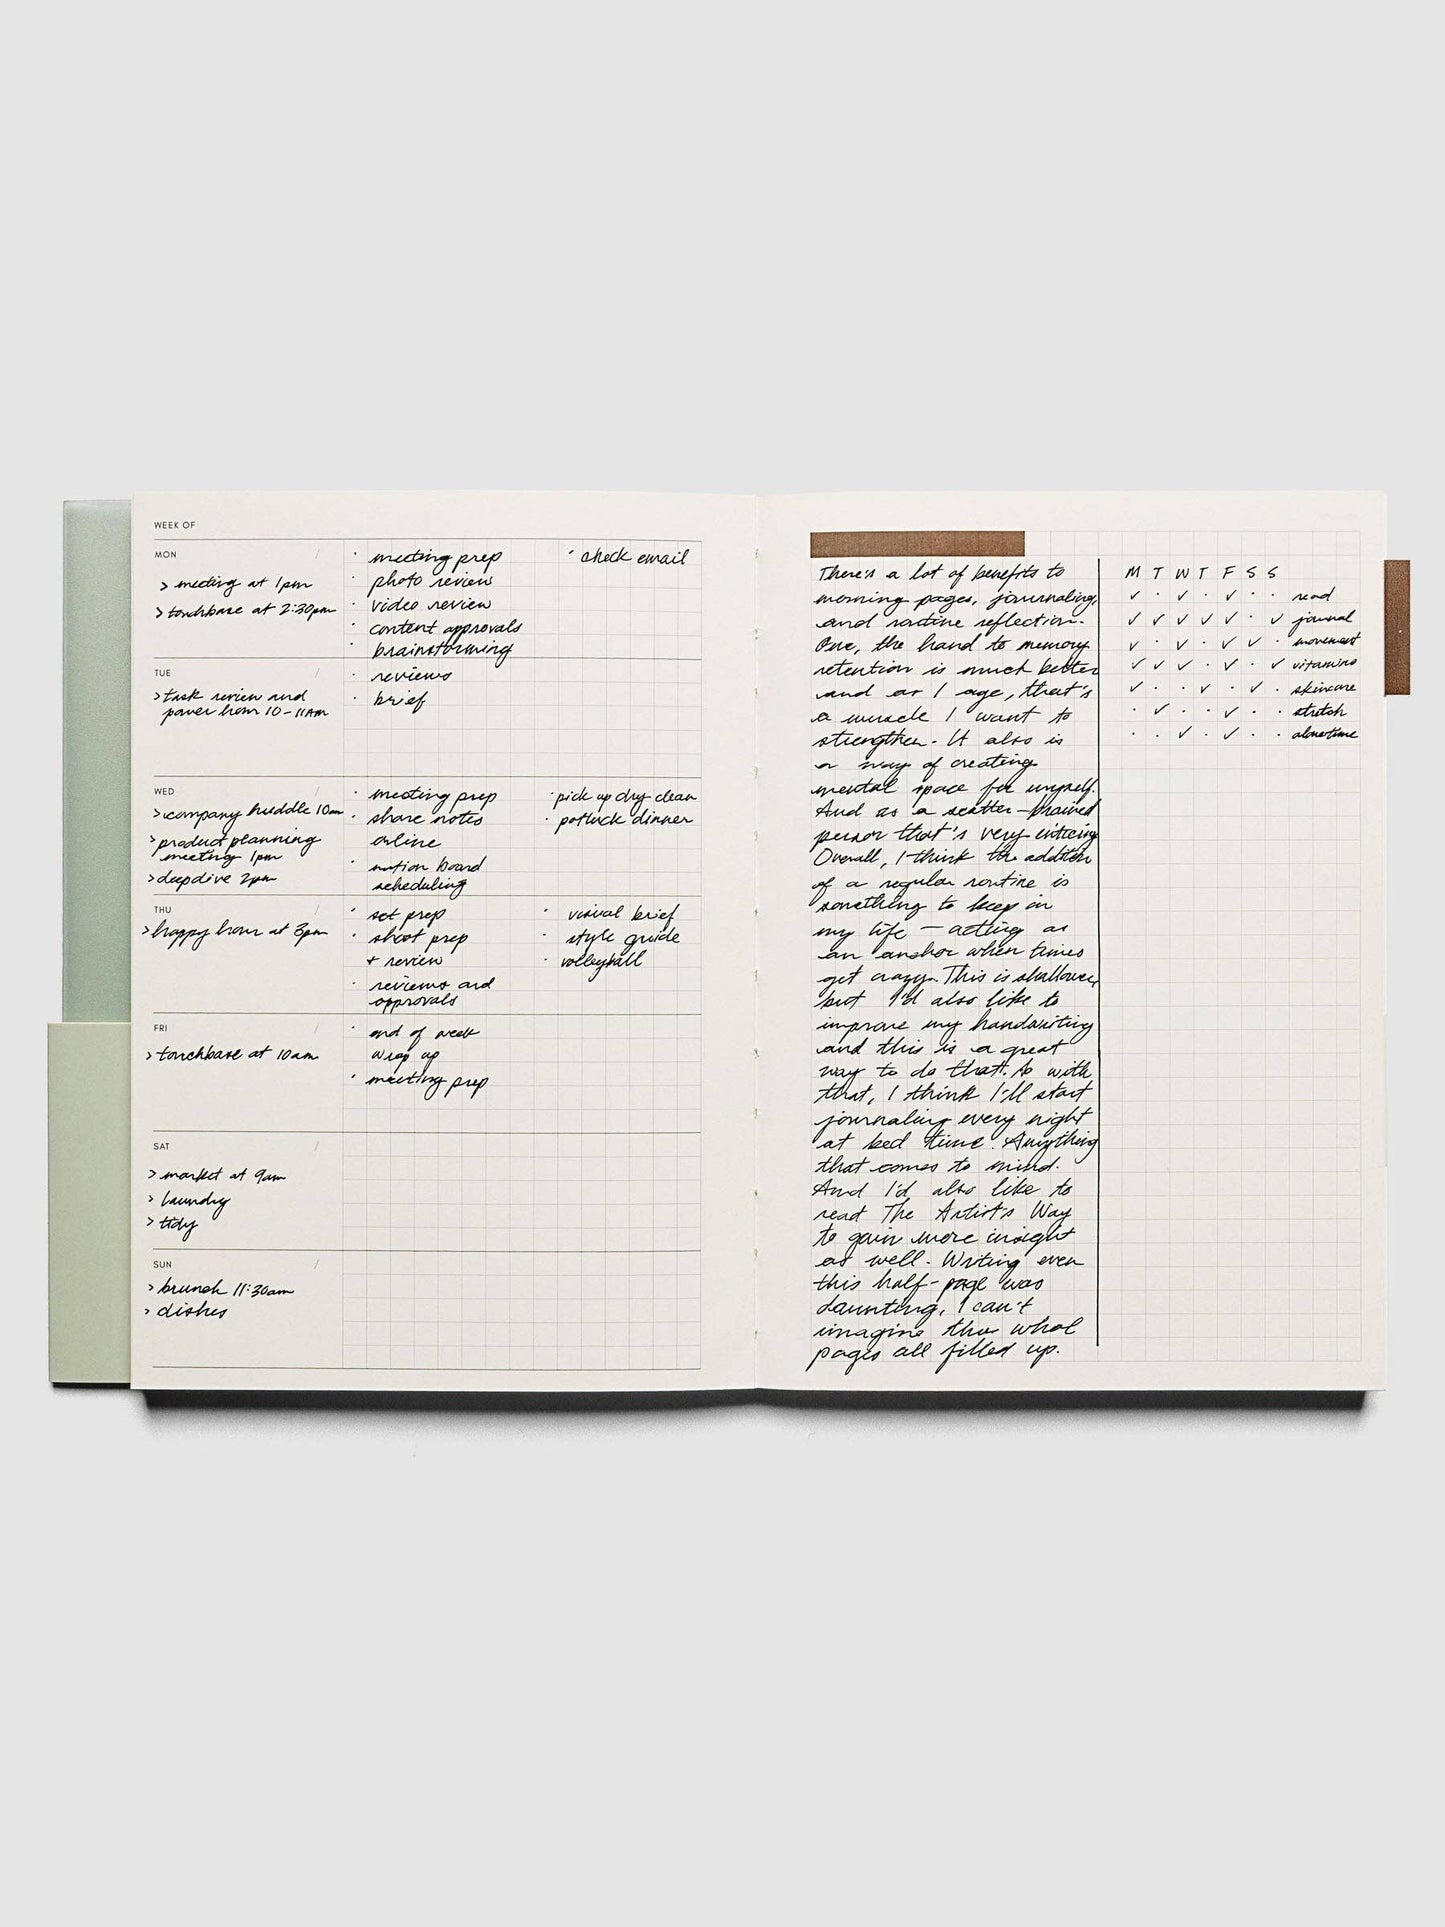 WEEK OF
MON /
> meeting at 1pm
> touchbase at 2:30pm
· meeting prep
· photo review
· video review
· content approvals
· brainstorming
· check email
TUE /
> task review and
power hour 10-11AM
· reviews
· brief
WED /
> company huddle 10am
> product planning
meeting 1pm
> deepdive 2pm
· meeting prep
· share notes
online
· motion board
scheduling
· pick up dry clean
· potluck dinner
THU /
> happy hour at 3pm
· set prep
· shoot prep
+ review
· reviews and
approvals
· visual brief
· style guide
· volleyball
FRI /
> touchbase at 10am
· end of week
wrap up
· meeting prep
SAT /
> market at 9am
> laundry
> tidy
SUN /
> brunch 11:30am
> dishes
There's a lot of benefits to
morning pages, journaling,
and routine reflection.
One, the hand to memory
retention is much better
and as I age, that's
a muscle I want to
strengthen. It also is
a way of creating
mental space for myself.
And as a scatter-brained
person that's very enticing
Overall, I think the addition
of a regular routine is
something to keep in
my life — acting as
an anchor when times
get crazy. This is shallow,
but I'd also like to
improve my handwriting
and this is a great
way to do that. So with
that, I think I'll start
journaling every night
at bed time. Anything
that comes to mind.
And I'd also like to
read The Artist's Way
to gain more insight
as well. Writing even
this half-page was
daunting, I can't
imagine the whol
pages all filled up.
M T W T F S S
✓ · ✓ · ✓ · · read
✓ ✓ ✓ ✓ ✓ · ✓ journal
✓ · ✓ · ✓ ✓ · movement
✓ ✓ ✓ · ✓ · ✓ vitamins
✓ · · ✓ · ✓ · skincare
· ✓ · · ✓ · · stretch
· · ✓ · ✓ · · alonetime